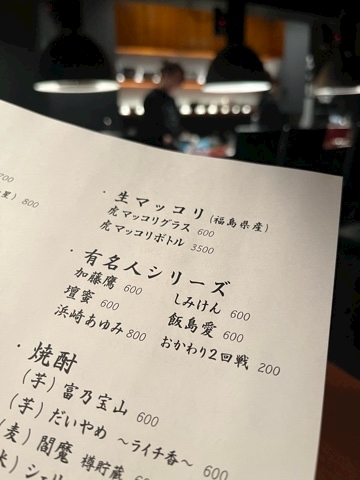 700
800
・生マッコリ(福島県産)
虎マッコリグラス 600
虎マッコリボトル 3500
・有名人シリーズ
加藤鷹 600 しみけん 600
壇蜜 600 飯島愛 600
浜崎あゆみ 800 おかわり2回戦 200
・焼酎
(芋) 富乃宝山 600
(芋) だいやめ ～ライチ香～ 600
(麦) 閻魔 樽貯蔵 600